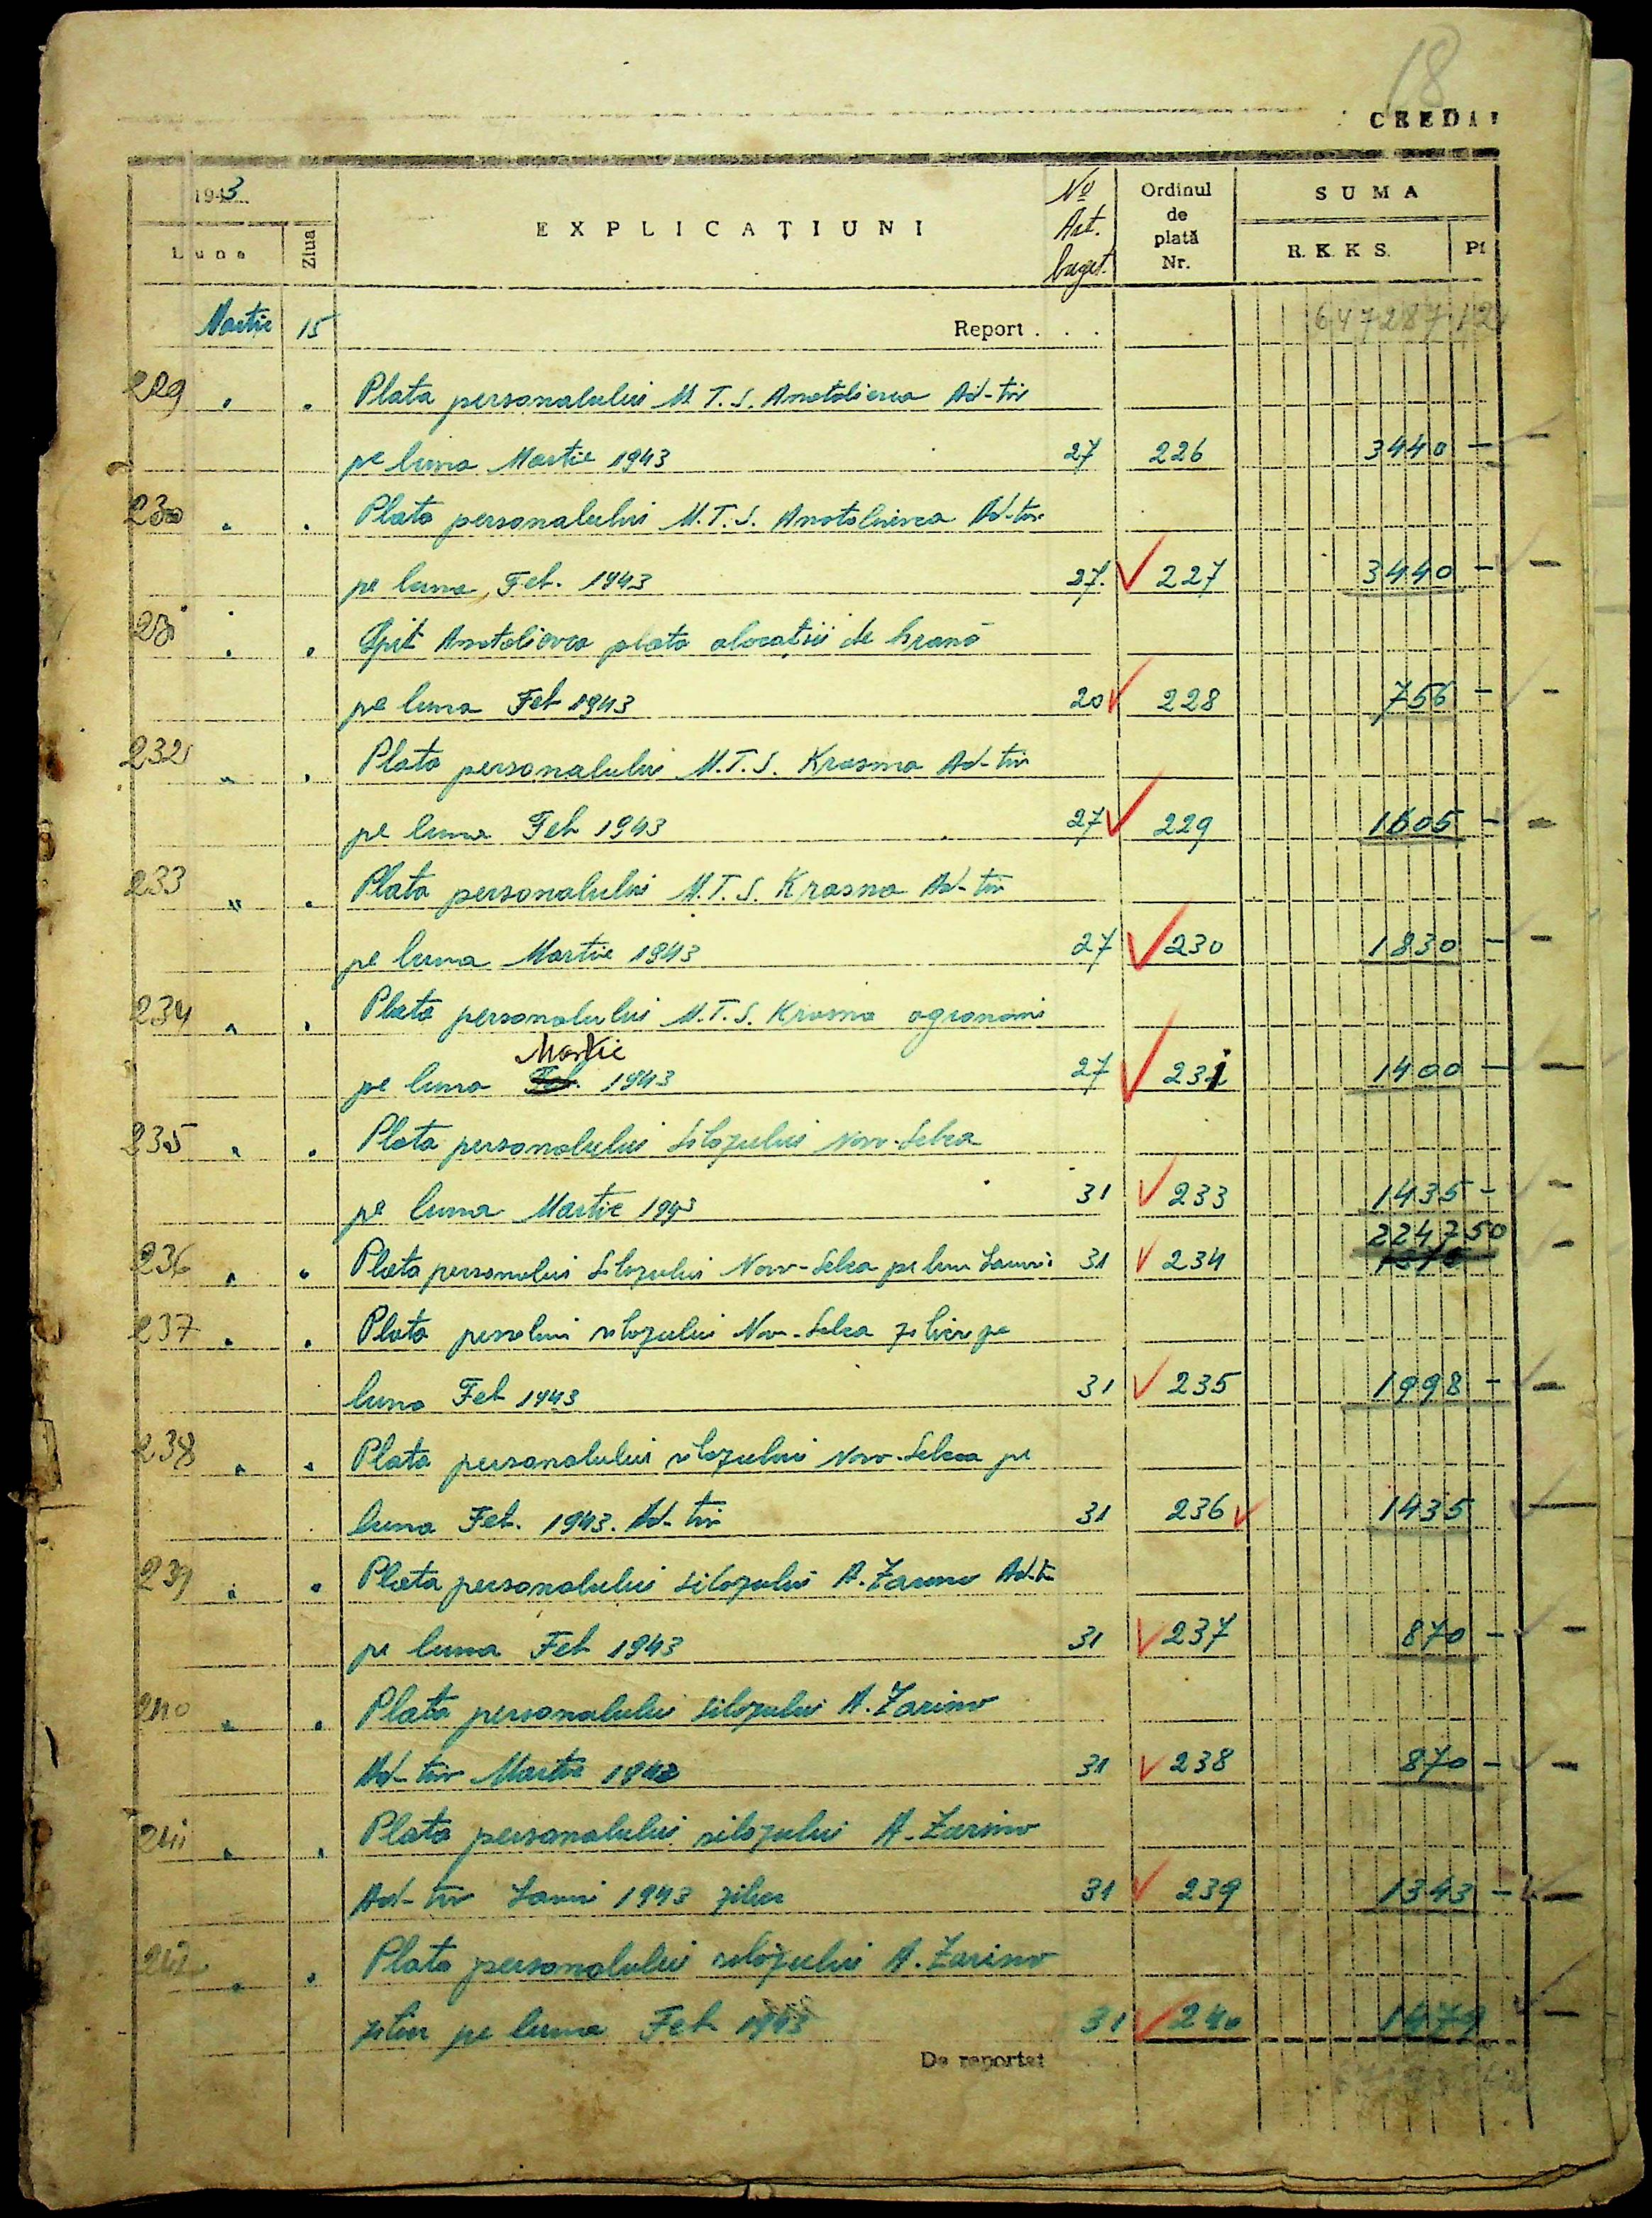 18
CREDIT
1943
Luna
Ziua
EXPLICAȚIUNI
No Art. buget.
Ordinul de plată Nr.
SUMA
R. K. K. S.
Pf
Martie 15 Report . . . 647287 12
229 " " Plata personalului M.T.S. Anatolievca Ad-tiv
pe luna Martie 1943 27 226 3440 -
230 " " Plata personalului M.T.S. Anatolievca Ad-tiv
pe luna Feb. 1943 27. 227 3440 -
" " Spit Anatolievca plata alocației de hrană
pe luna Feb 1943 20 228 756 -
232 " " Plata personalului M.T.S. Krasna Ad-tiv
pe luna Feb 1943 27 229 1605 -
233 " " Plata personalului M.T.S. Krasna Ad-tiv
pe luna Martie 1943 27 230 1830 -
234 " " Plata personalului M.T.S. Krasna agronomi
Martie
pe luna Feb. 1943 27 231 1400 -
235 " " Plata personalului Silozului Novo-Selca
pe luna Martie 1943 31 233 1435 -
2247 50
236 " " Plata personalui Silozului Novo-Selca pe luna Ianuri 31 234
237 " " Plata silozului Nov-Selca zilieri pe
luna Feb 1943 31 235 1998 -
238 " " Plata personalului silozului Novo-Selca pe
luna Feb. 1943. Ad-tiv 31 236 1435
239 " " Plata personalului silozului A. Zarino Ad-tiv
pe luna Feb 1943 31 237 870 -
240 " " Plata personalului silozului A. Zarino
Ad-tiv Martie 1943 31 238 870 -
241 " " Plata personalului silozului A. Zarino
Ad-tiv Ianuri 1943 zilier 31 239 1343 -
242 " " Plata personalului silozului A. Zarino
pe luna Feb 1943 31 240 1479
De reportat